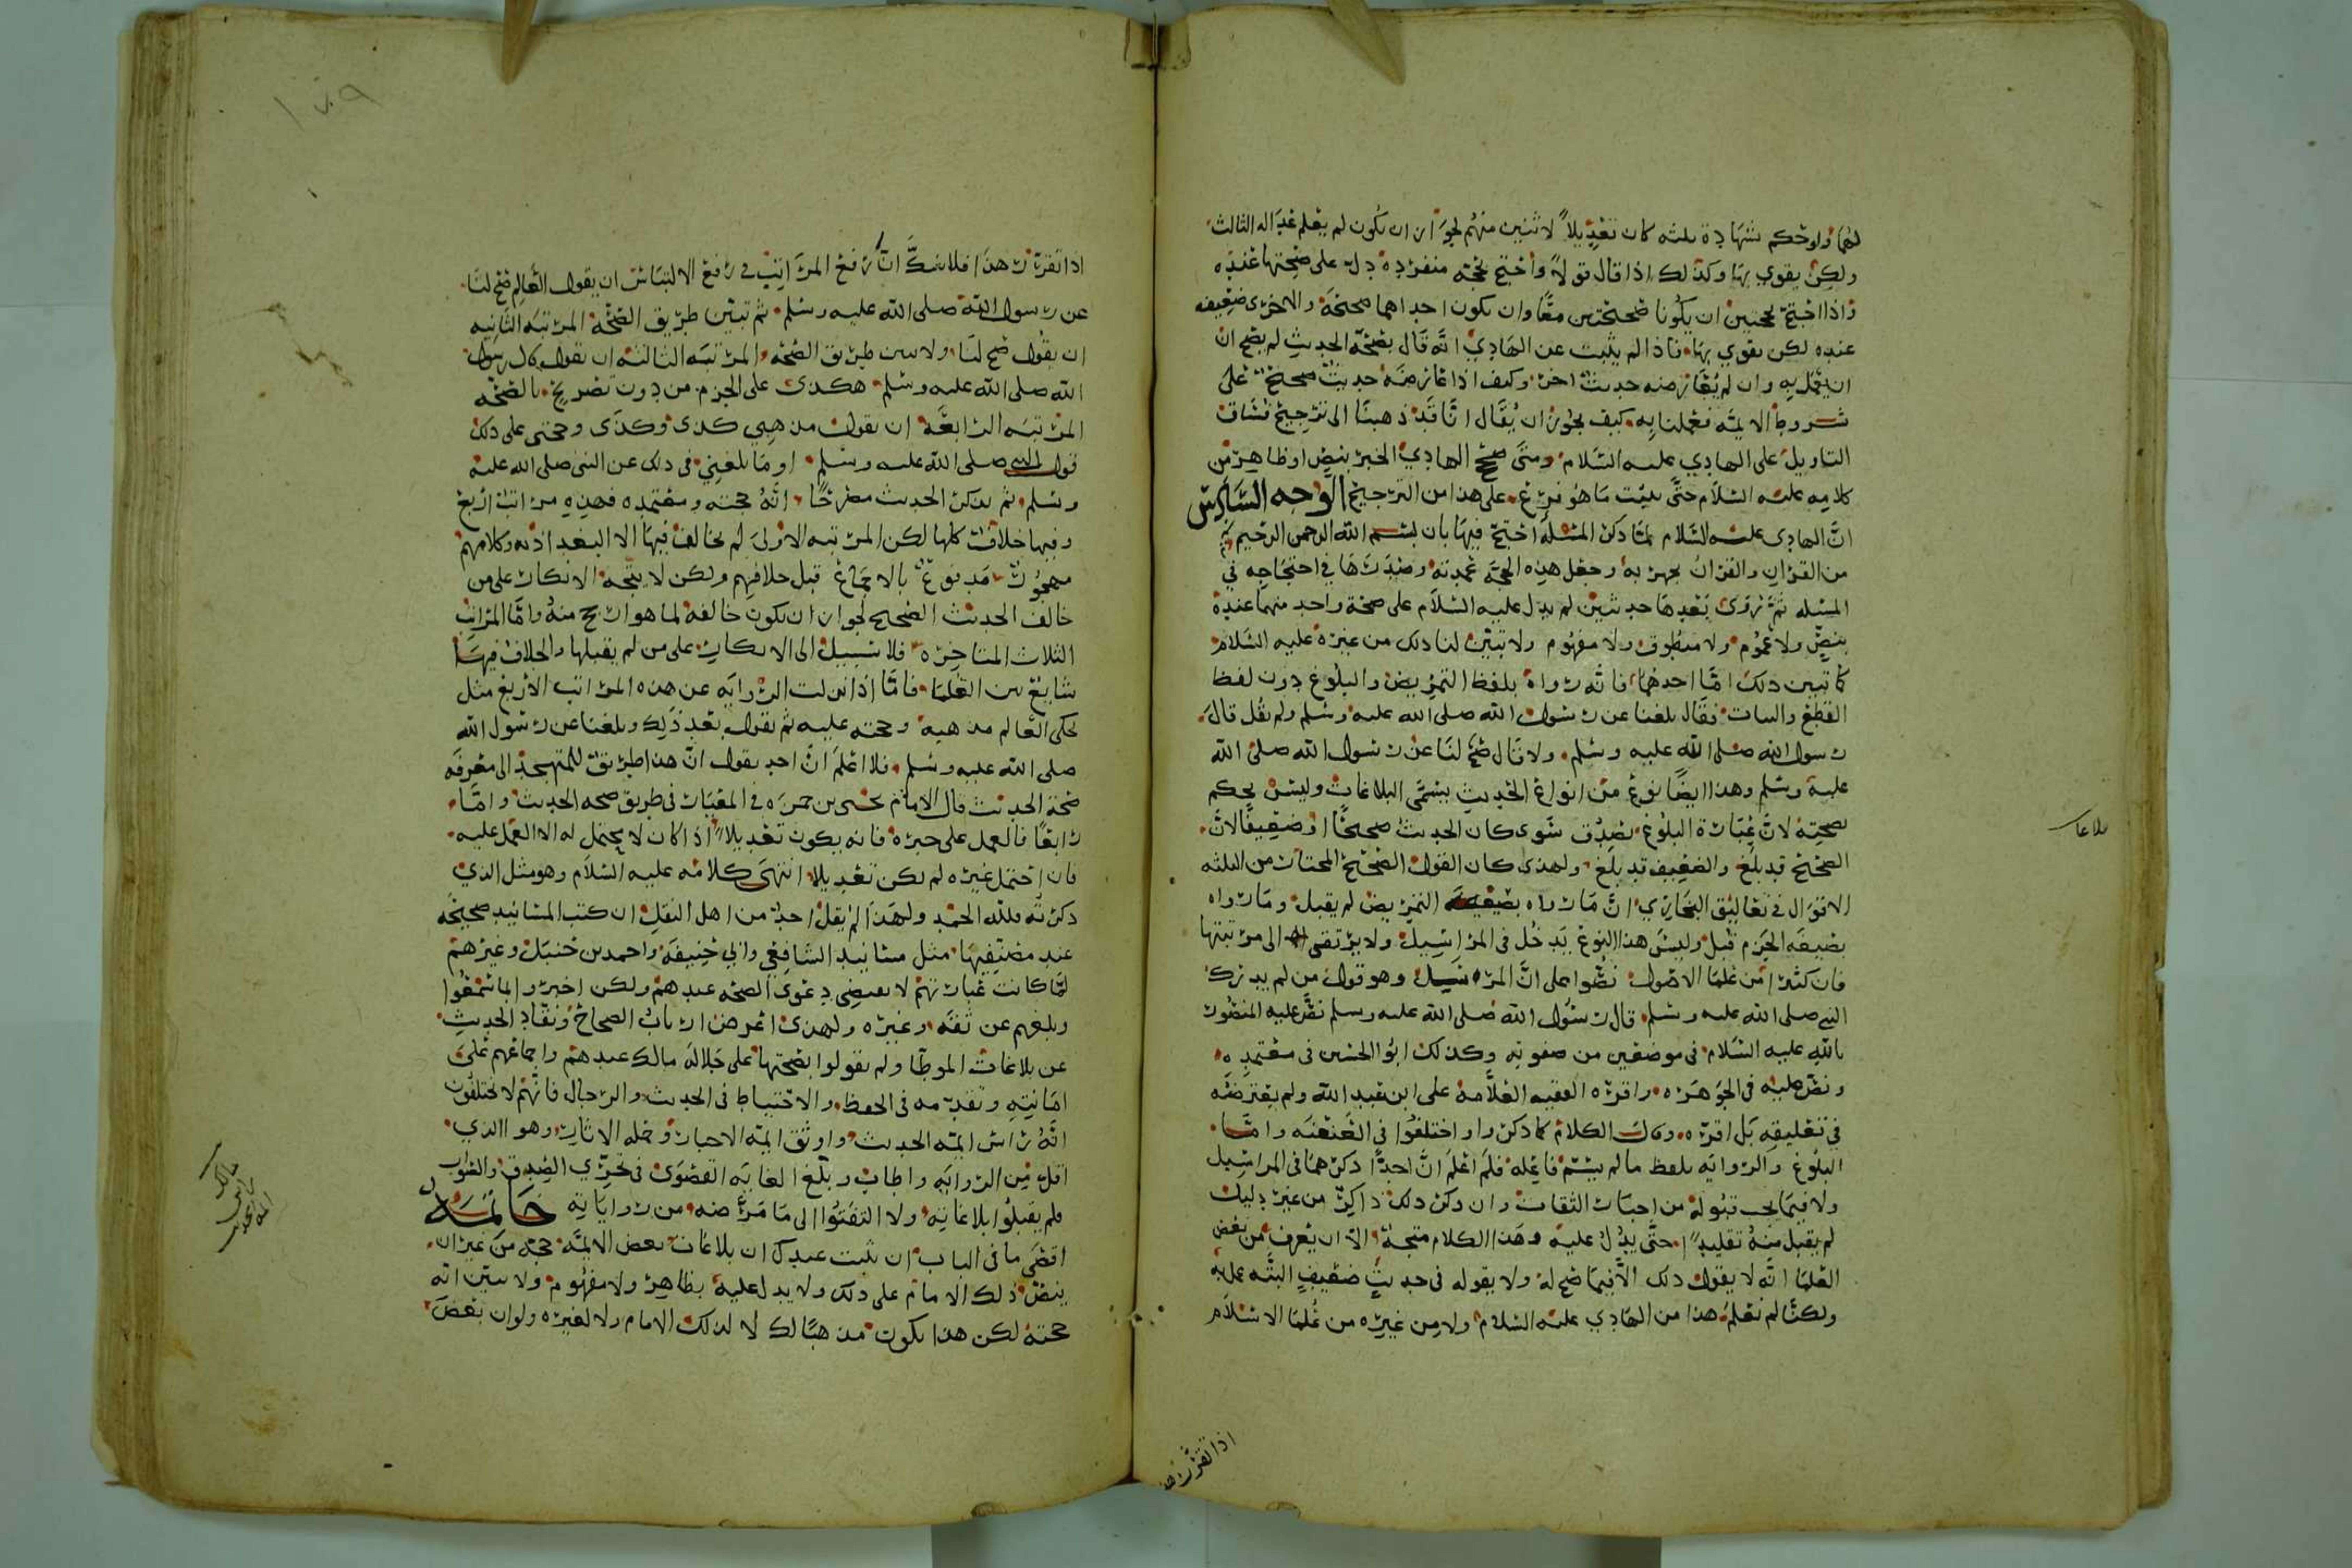 لهما ولو حكم بشهادة ثلثه كان تعديلاً لاثنين منهم لجواز ان يكون لم يعلم عداله الثالث
ولكن يقوي بها وكذلك اذا قال قولاً واحتج بحجه منفرده دل على صحتها عنده
واذا احتج بحجتين ان يكونا صحيحتين معًا وان يكون احداهما صحيحة والاخرى ضعيفه
عنده لكن يقوي بها فاذا لم يثبت عن الهادي انه قال بصحة الحديث لم يصح ان
ان يعمل به وان لم يعارضه حديث اخر وكيف اذا عارضه حديث صحيح على
شروط الايمه فعملنا به كيف يجوز ان يُقال انا قد ذهبنا الى ترجيح فساق
التاويل على الهادي عليه السلام ومتى صح الهادي الخبر بنص او ظاهر من
كلامه عليه السلام حتى يثبت ما هو فرع على هذا من الترجيح الوجه السادس
ان الهادي عليه السلام لما ذكر المسله احتج فيها بان بسم الله الرحمن الرحيم
من القران والقران يجهر به وجعل هذه الحجه عمدته وصدرها في احتجاجه في
المسله ثم روى بعدها حديثين لم يدل عليه السلام على صحة واحد منهما عنده
بنص ولا عموم ولا منطوق ولا مفهوم ولا تبين لنا ذلك من غيره عليه السلام
كما تبين ذلك اما احدهما فانه رواه بلفظ التمريض والبلوغ دون لفظ
القطع والبتات فقال بلغنا عن رسول الله صلى الله عليه وسلم ولم يقل قال
رسول الله صلى الله عليه وسلم ولا قال صح لنا عن رسول الله صلى الله
عليه وسلم وهذا ايضًا نوع من انواع الحديث يسمى البلاغات وليس يحكم
بصحته لان عبارة البلوغ تصدق سوى كان الحديث صحيحًا او ضعيفًا لان
الصحيح قد بلغ والضعيف قد بلغ ولهذى كان القول الصحيح المختار من الثلثه
الاقوال في تعاليق البخاري ان ما رواه بصيغة التمريض لم يقبل وما رواه
بصيغه الجزم قُبل وليس هذا النوع يدخل في المراسيل ولا يرتقى الى مرتبتها
فان كثيرا من علما الاصول نصوا على ان المراسيل وهو قول من لم يدرك
النبي صلى الله عليه وسلم قال رسول الله صلى الله عليه وسلم نص عليه المنصور
بالله عليه السلام في موضعين من صفوته وكذلك ابو الحسين في معتمده
ونص عليه في الجوهره واقره الفقيه العلامة على ابن عبد الله ولم يعترضه
في تعليقه بل اقره وكان الكلام كما ذكر واو اختلفوا في العنعنه واما
البلوغ والروايه بلفظ ما لم يسم فاعله فلم اعلم ان احدًا ذكرهما في المراسيل
ولا فيما يجب قبوله من اخبار الثقات وان ذكر ذلك ذاكر من غير دليل
لم يقبل منه تقليدًا حتى يدل عليه وهذا الكلام متجه الا ان يعرف من بعض
العلما انه لا يقول ذلك الا فيما صح له ولا يقوله في حديث ضعيف البته عمل به
ولكنا لم نعلم هذا من الهادي عليه السلام ولا من غيره من علما الاسلام
بلاغات
اذا تقرر هذا
١٧٩
اذا تقرر هذا فلا شك ان ارفع المراتب في رفع الالتباس ان يقول العالم صح لنا
عن رسول الله صلى الله عليه وسلم ثم تبين طريق الصحة المرتبه الثانيه
ان يقول صح لنا ولا يبين طريق الصحه المرتبه الثالثه ان يقول قال رسول
الله صلى الله عليه وسلم هكذى على الجزم من دون تصريح بالصحه
المرتبه الرابعة ان يقول مذهبي كذى وكذى وحجتى على ذلك
قول النبي صلى الله عليه وسلم او ما بلغني في ذلك عن النبي صلى الله عليه
وسلم ثم يذكر الحديث مصرحًا انه حجته ومعتمده فهذه مراتب اربع
وفيها خلاف كلها لكن المرتبه الاولى لم يخالف فيها الا البغداذيه وكلامهم
مهجور مدفوع بالاجماع قبل خلافهم ولكن لا يتجه الانكار على من
خالف الحديث الصحيح لجواز ان يكون خالفه لما هو ارجح منه واما المراتب
الثلاث المتاخره فلا سبيل الى الانكار على من لم يقبلها والخلاف فيها
شايع بين العلما فاما اذا نزلت الروايه عن هذه المراتب الاربع مثل
يحكى العالم مذهبه وحجته عليه ثم يقول بعد ذلك وبلغنا عن رسول الله
صلى الله عليه وسلم فلا اعلم ان احد يقول ان هذا طريق للمتهجد الى معرفه
صحة الحديث قال الامام يحيى بن حمزه في المعيار في طريق صحه الحديث واما
رابعًا فالعمل على خبره فانه يكون تعديلاً اذا كان لا يحتمل له الا العمل عليه
فان احتمل غيره لم يكن تعديلا انتهى كلامه عليه السلام وهو مثل الذي
ذكرته فلله الحمد ولهذا لم يقل احد من اهل النقل ان كتب المسانيد صحيحه
عند مصنفيها مثل مسانيد الشافعي وابي حنيفه واحمد بن حنبل وغيرهم
لما كانت عبارتهم لا تقتضى دعوى الصحه عندهم ولكن اخبروا بما سمعوا
وبلغهم عن ثقه وغيره ولهذى اعرض ارباب الصحاح ونقاد الحديث
عن بلاغات الموطا ولم يقولوا بصحتها على جلالة مالك عندهم واجماعهم على
امانته وتقدمه في الحفظ والاحتياط في الحديث والرجال فانهم لا يختلفون
انه راس ايمة الحديث واوثق ايمة الاخبار وحمله الاثار وهو الذي
اقل من الروايه واطاب وبلغ الغايه القصوى في تحري الصدق والصواب
فلم يقبلوا بلاغاته ولا التفتوا الى ما مرض منه من رواياته خاتمة
اقصى ما في الباب ان يثبت عندك ان بلاغات بعض الايمة حجه من غير ان
ينص ذلك الامام على ذلك ولا يدل عليه بظاهر ولا مفهوم ولا يبين انه
حجته لكن هذا يكون مذهبًا لك لا لذلك الامام ولا لغيره ولو ان بعض
مالك
راس
ايمة الحديث